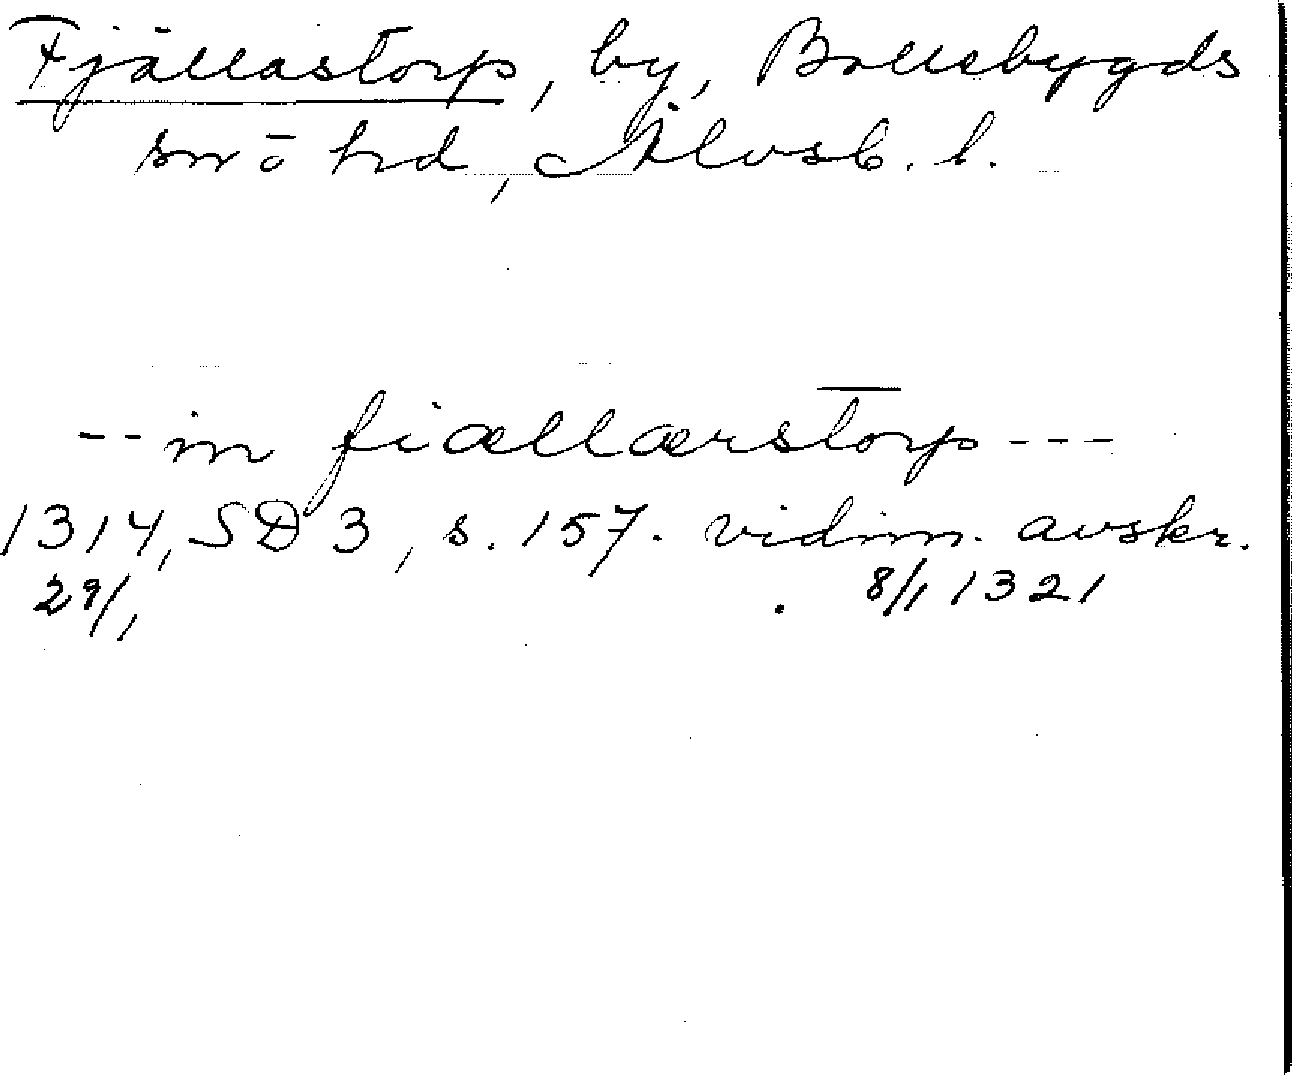 Fjällastorp, by, Bollebygds
sn o hd, Älvsb. l.
-- in fiællærstorp ---
1314, SD 3, s. 157. vidim. avskr.
29/1 8/1 1321